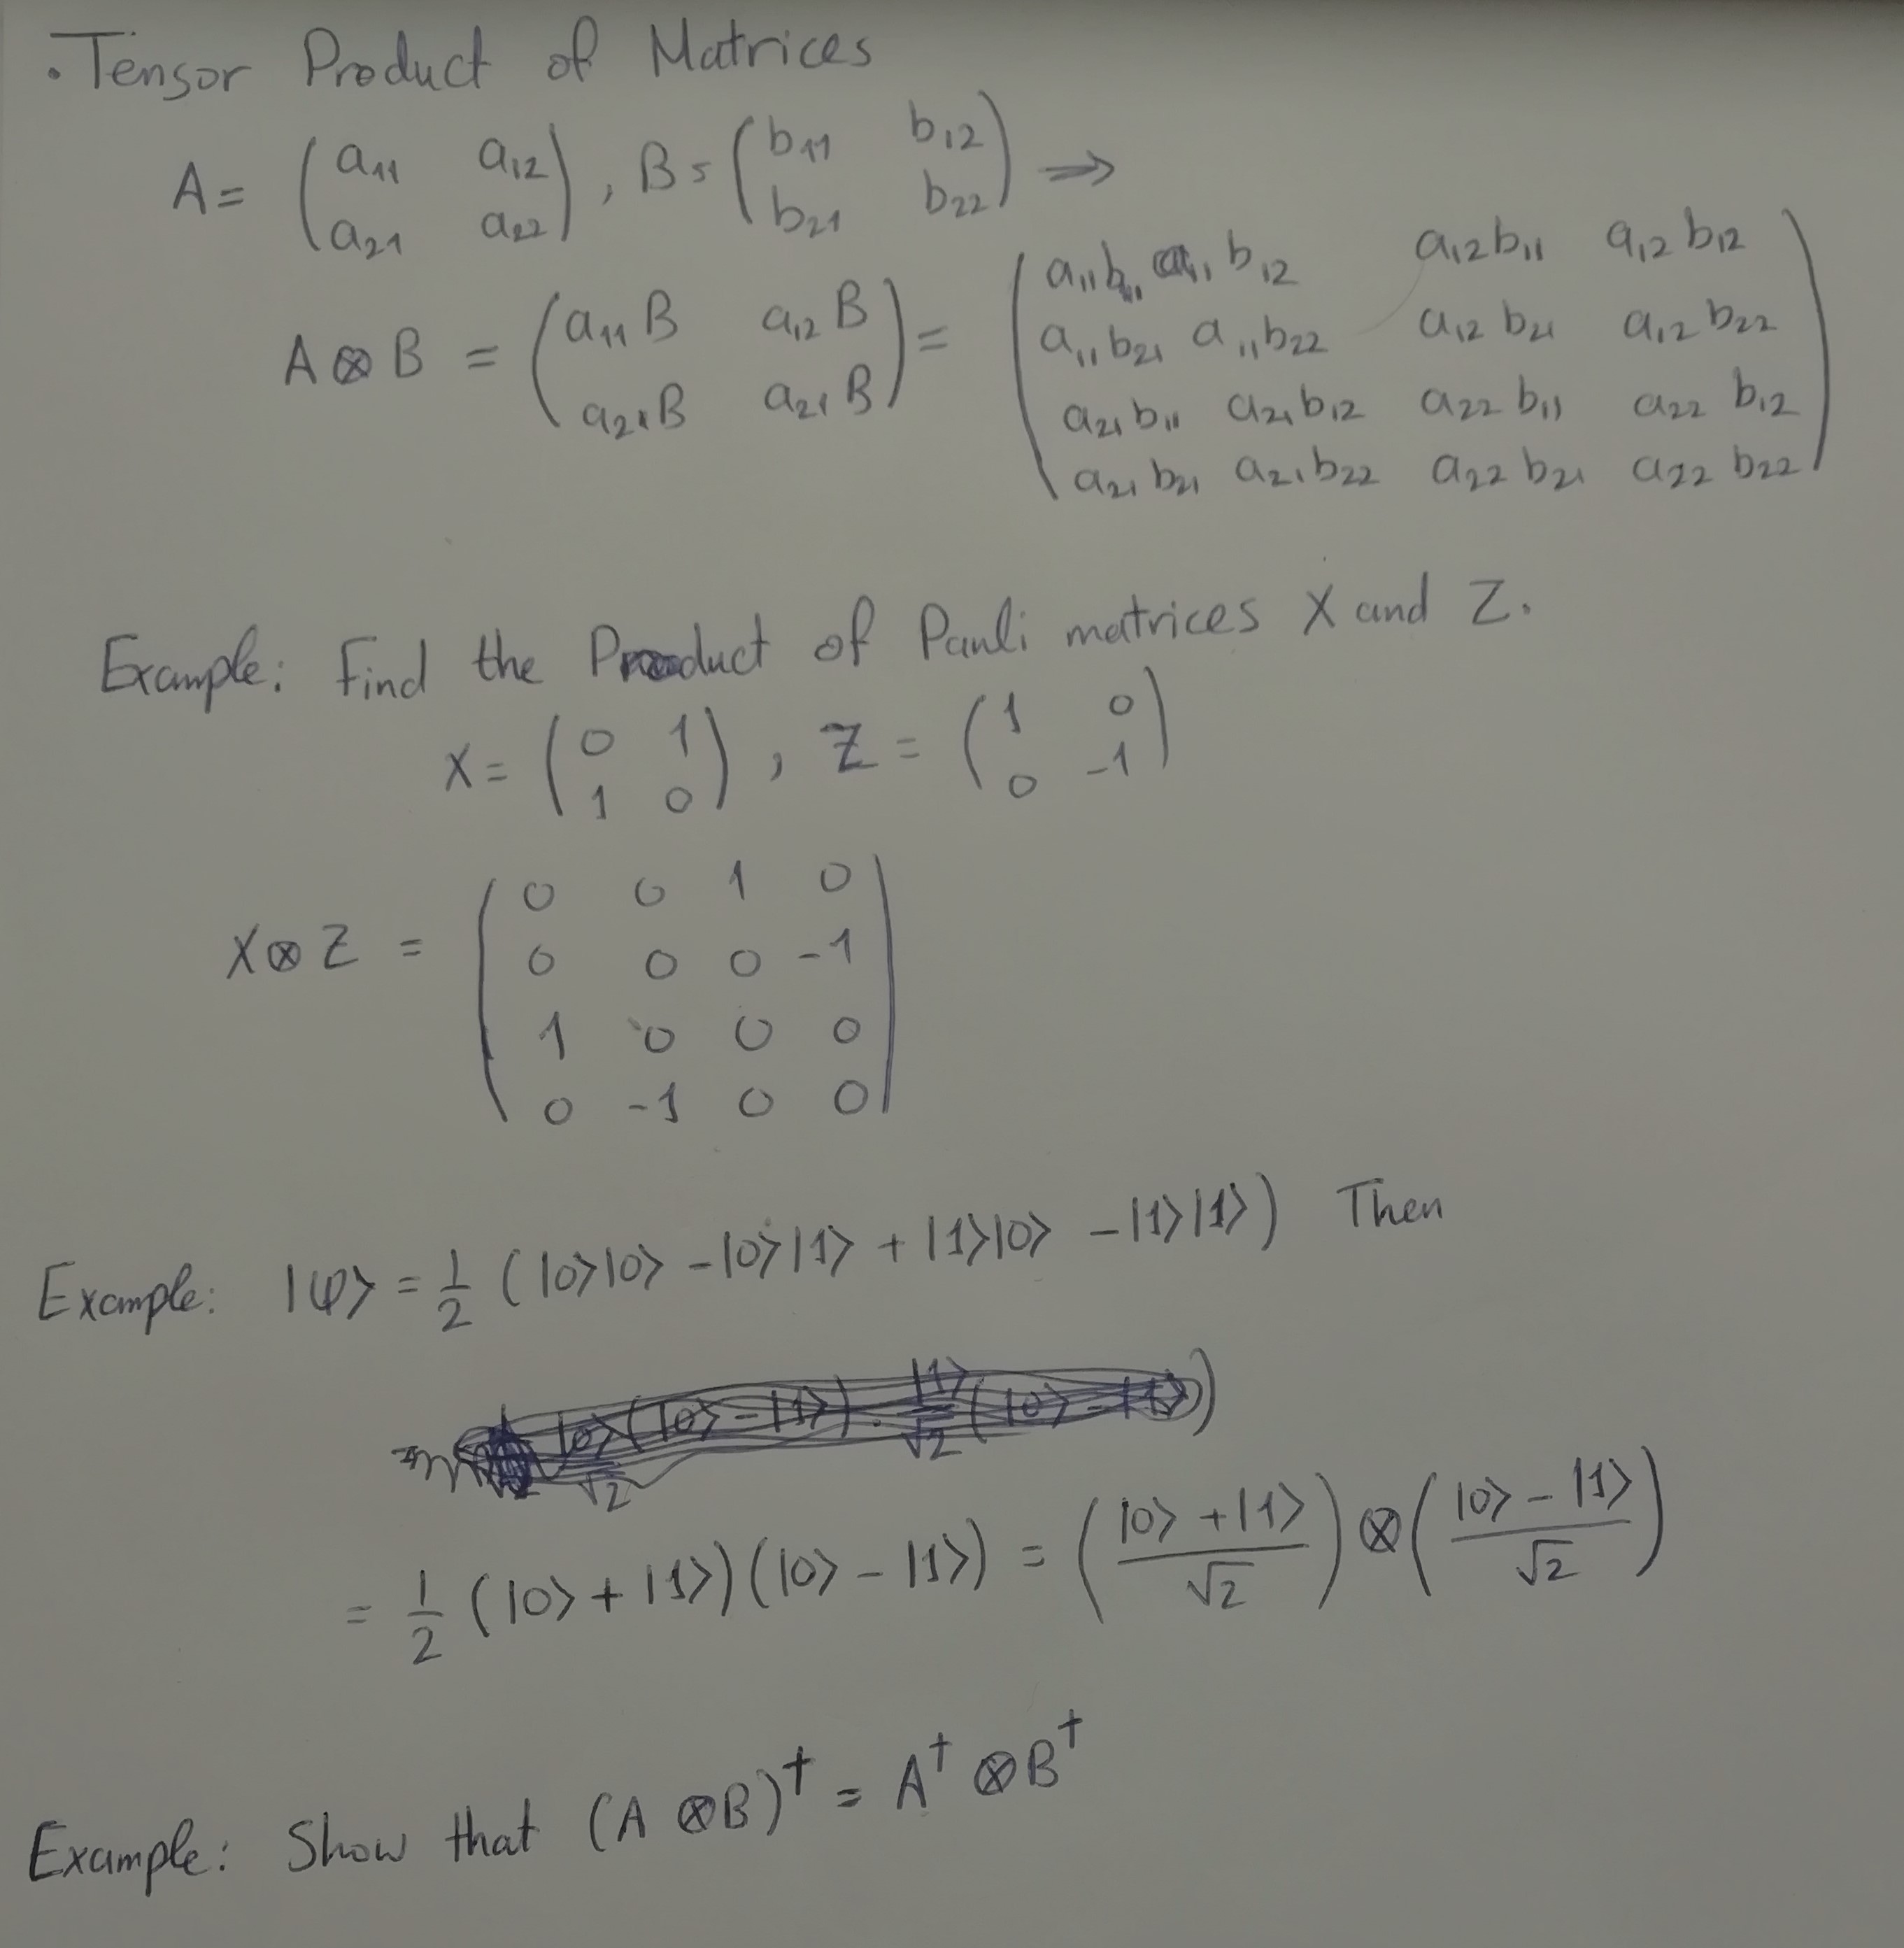 . Tensor Product of Matrices
A = (a₁₁ a₁₂ ; a₂₁ a₂₂) , B = (b₁₁ b₁₂ ; b₂₁ b₂₂) ⇒
A ⊗ B = (a₁₁B a₁₂B ; a₂₁B a₂₁B) = (a₁₁b₁₁ a₁₁b₁₂ a₁₂b₁₁ a₁₂b₁₂ ; a₁₁b₂₁ a₁₁b₂₂ a₁₂b₂₁ a₁₂b₂₂ ; a₂₁b₁₁ a₂₁b₁₂ a₂₂b₁₁ a₂₂b₁₂ ; a₂₁b₂₁ a₂₁b₂₂ a₂₂b₂₁ a₂₂b₂₂)
Example: Find the Product of Pauli matrices X and Z.
X = (0 1 ; 1 0) , Z = (1 0 ; 0 -1)
X ⊗ Z = (0 0 1 0 ; 0 0 0 -1 ; 1 0 0 0 ; 0 -1 0 0)
Example: |φ> = 1/2 (|0>|0> - |0>|1> + |1>|0> - |1>|1>) Then
= 1/2 (|0> + |1>)(|0> - |1>) = ((|0> + |1>)/√2) ⊗ ((|0> - |1>)/√2)
Example: Show that (A ⊗ B)† = A† ⊗ B†